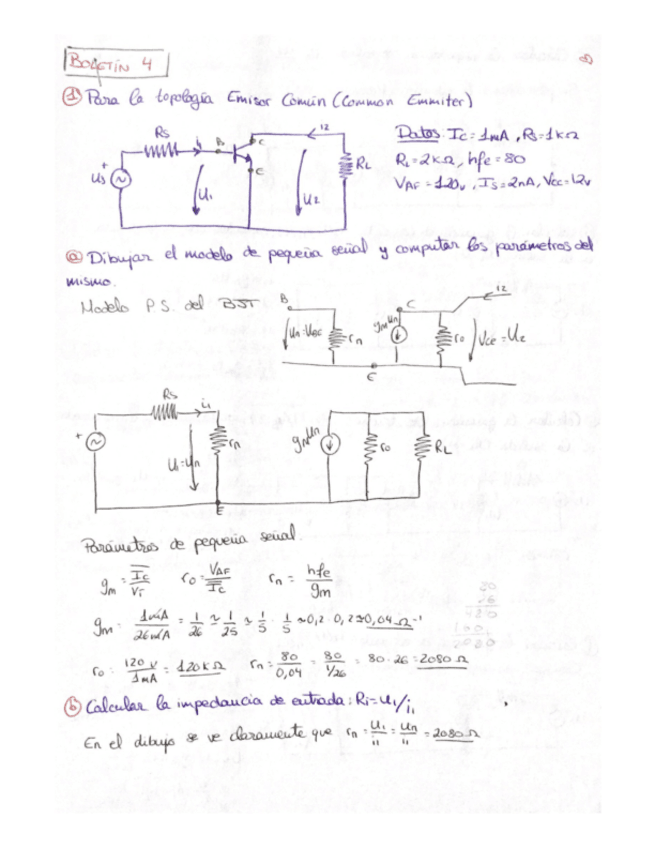 BOLETÍN 4
1
1º Para la topología Emisor Común (Common Emmiter)
Datos: Ic = 1mA, Rs = 1kΩ
RL = 2kΩ, hfe = 80
VAF = 120v, Is = 2nA, Vcc = 12v
Rs i1 B C i2
+ Us U1 E U2 RL
a Dibujar el modelo de pequeña señal y computar los parámetros del
mismo.
Modelo P.S. del BJT
B C i2
Uπ = VBE rπ gmUπ ro VCE = U2
E
Rs i1
+ U1 = Uπ rπ gmUπ ro RL
E
Parámetros de pequeña señal.
gm = Ic/VT ro = VAF/Ic rπ = hfe/gm
gm = 1mA/26mA = 1/26 ≈ 1/25 ≈ 1/5 · 1/5 ≈ 0,2 · 0,2 ≈ 0,04 Ω⁻¹
ro = 120 v/1mA = 120kΩ rπ = 80/0,04 = 80/1/26 = 80 · 26 = 2080 Ω
b Calcular la impedancia de entrada: Ri = U1/i1
En el dibujo se ve claramente que rπ = U1/i1 = Uπ/i1 = 2080 Ω